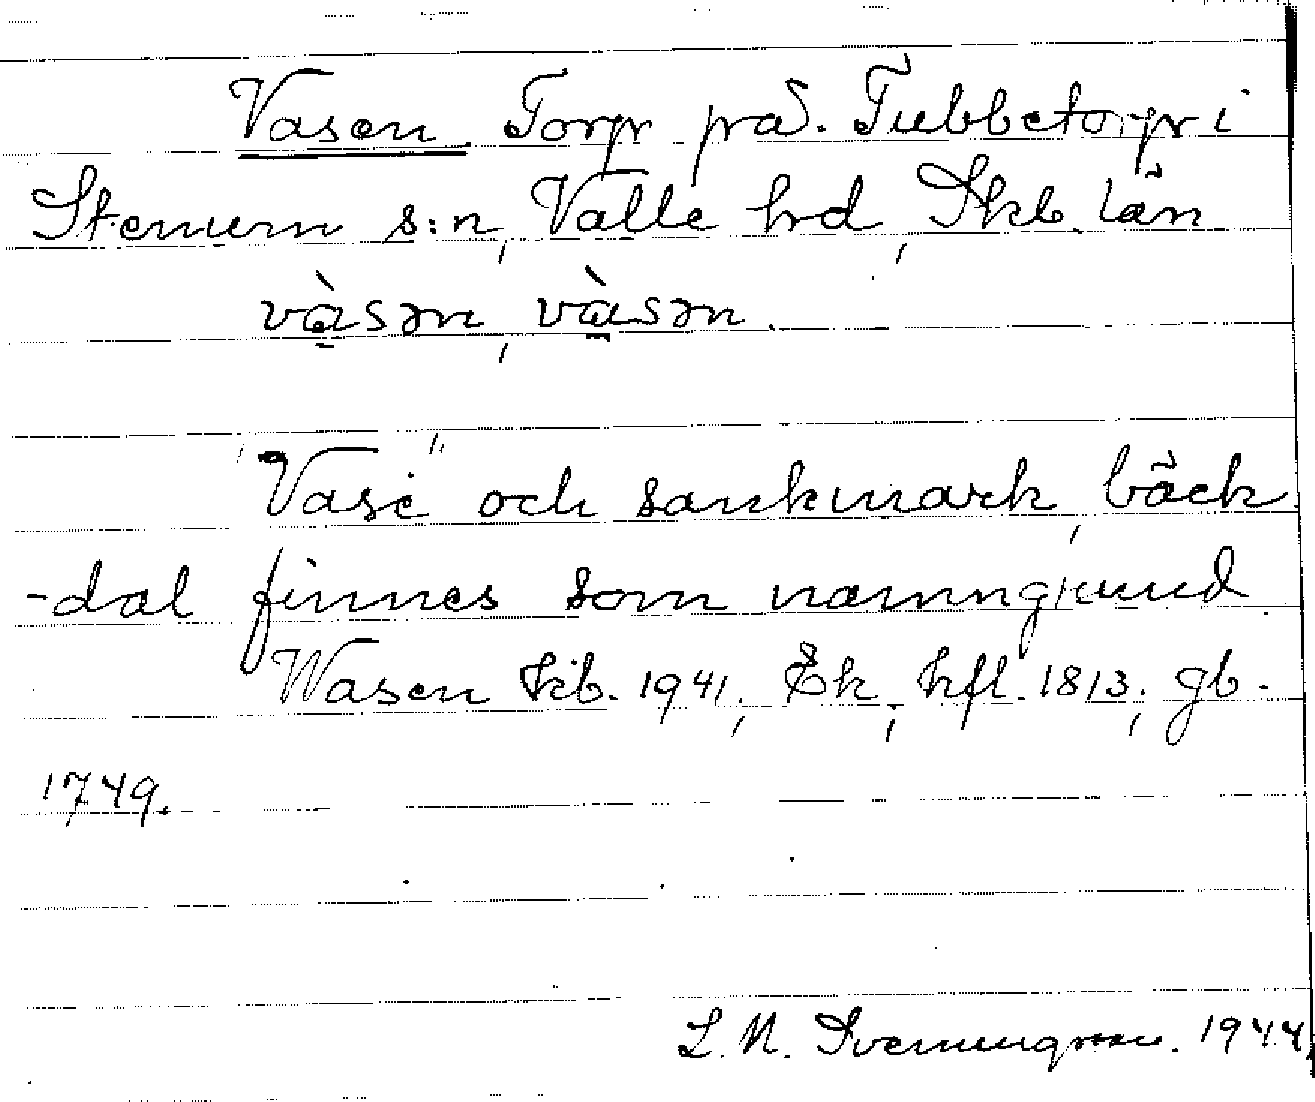 Vasen Torp på. Tubbetorp i
Stenum s:n, Valle hd, Skb. län
vàsən, vàsən.
"Vase" och sankmark, bäck
-dal finnes som namngrund
Wasen kb. 1941; Ek, hfl. 1813; gb.
1749.
L. N. Svenungsson. 1944.